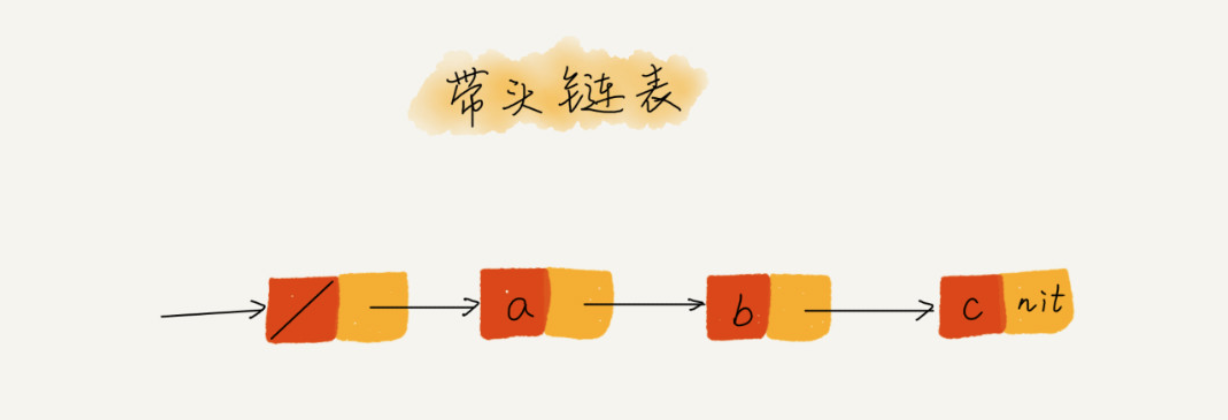 带头链表
a b c nit